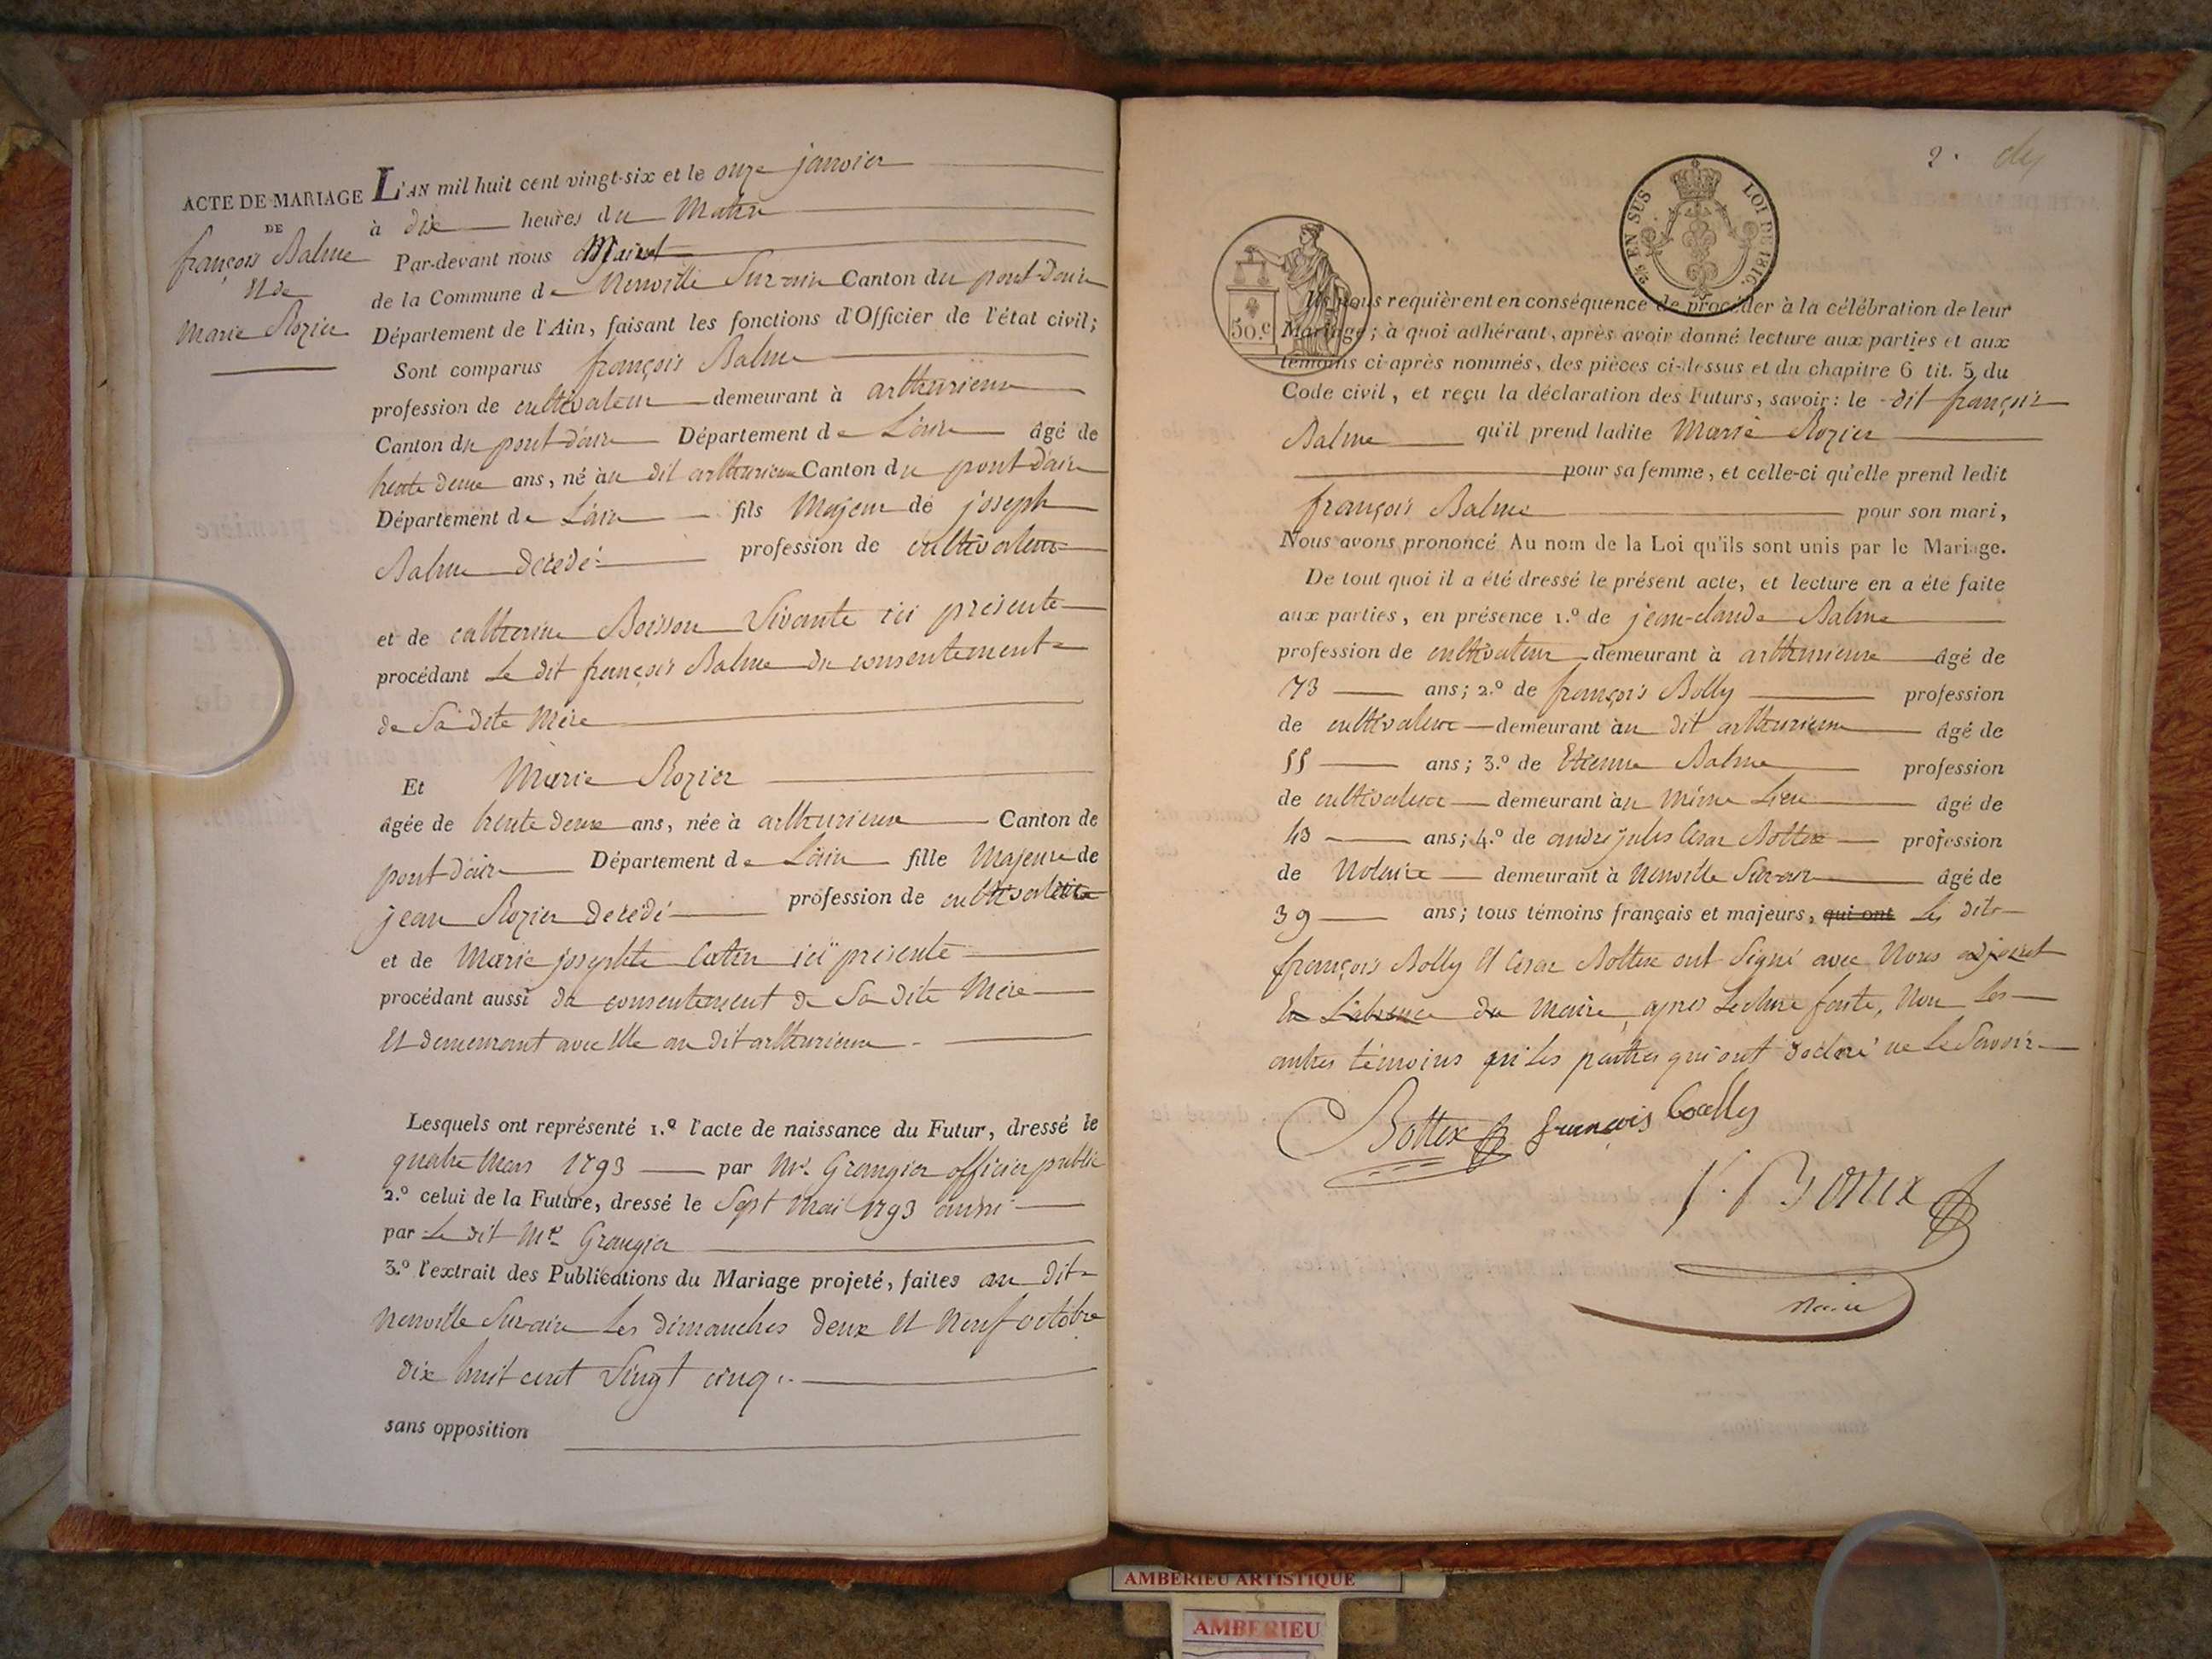 ACTE DE MARIAGE
DE
françois Balme
Et de
Marie Rozier
L'AN mil huit cent vingt-six et le onze janvier
à dix heures du Matin
Par-devant nous Maire
de la Commune de Neuville Sur-ain Canton du pont-Dain
Département de l'Ain, faisant les fonctions d'Officier de l'état civil;
Sont comparus françois Balme
profession de cultivateur demeurant à arthurieux
Canton du pont-d'ain Département de L'ain âgé de
trente deux ans, né au dit arthurieux Canton du pont-d'ain
Département de L'ain fils Majeur de joseph
Balme décédé profession de cultivateur
et de catherine Boisson Vivante ici présente
procédant Le dit françois Balme du consentement
de Sa dite Mère
Et Marie Rozier
âgée de trente deux ans, née à arthurieux Canton de
pont-d'ain Département de L'ain fille Majeure de
jean Rozier décédé profession de cultivateur
et de Marie josephte Catin ici présente
procédant aussi du consentement de Sa dite Mère
Et demeurant avec Elle au dit arthurieux
Lesquels ont représenté 1.º l'acte de naissance du Futur, dressé le
quatre Mars 1793 par Mr. Grangier officier public
2.º celui de la Future, dressé le Sept Mai 1793 aussi
par Le dit Mr. Grangier
3.º l'extrait des Publications du Mariage projeté, faites au dit
Neuville Sur-ain Les dimanches deux Et Neuf octobre
dix huit cent Vingt cinq
sans opposition
2.
2/5 EN SUS LOI DE 1816.
50.c
Ils nous requièrent en conséquence de procéder à la célébration de leur
Mariage; à quoi adhérant, après avoir donné lecture aux parties et aux
témoins ci-après nommés, des pièces ci-dessus et du chapitre 6 tit. 5 du
Code civil, et reçu la déclaration des Futurs, savoir: le dit françois
Balme qu'il prend ladite Marie Rozier
pour sa femme, et celle-ci qu'elle prend ledit
françois Balme pour son mari,
Nous avons prononcé Au nom de la Loi qu'ils sont unis par le Mariage.
De tout quoi il a été dressé le présent acte, et lecture en a été faite
aux parties, en présence 1.º de jean-claude Balme
profession de cultivateur demeurant à arthurieux âgé de
73 ans; 2.º de françois Bolly profession
de cultivateur demeurant au dit arthurieux âgé de
55 ans; 3.º de Etienne Balme profession
de cultivateur demeurant au même Lieu âgé de
43 ans; 4.º de andré jules César Bottex profession
de Notaire demeurant à Neuville Sur-ain âgé de
39 ans; tous témoins français et majeurs, qui ont Les dits
françois Bolly Et César Bottex ont Signé avec Nous adjoint
En L'absence du Maire, apres Lecture faite, Non Les
autres témoins ni Les parties qui ont déclaré ne Le Savoir
Bottex françois Bolly
Bottex
Maire
AMBERIEU ARTISTIQUE
AMBERIEU